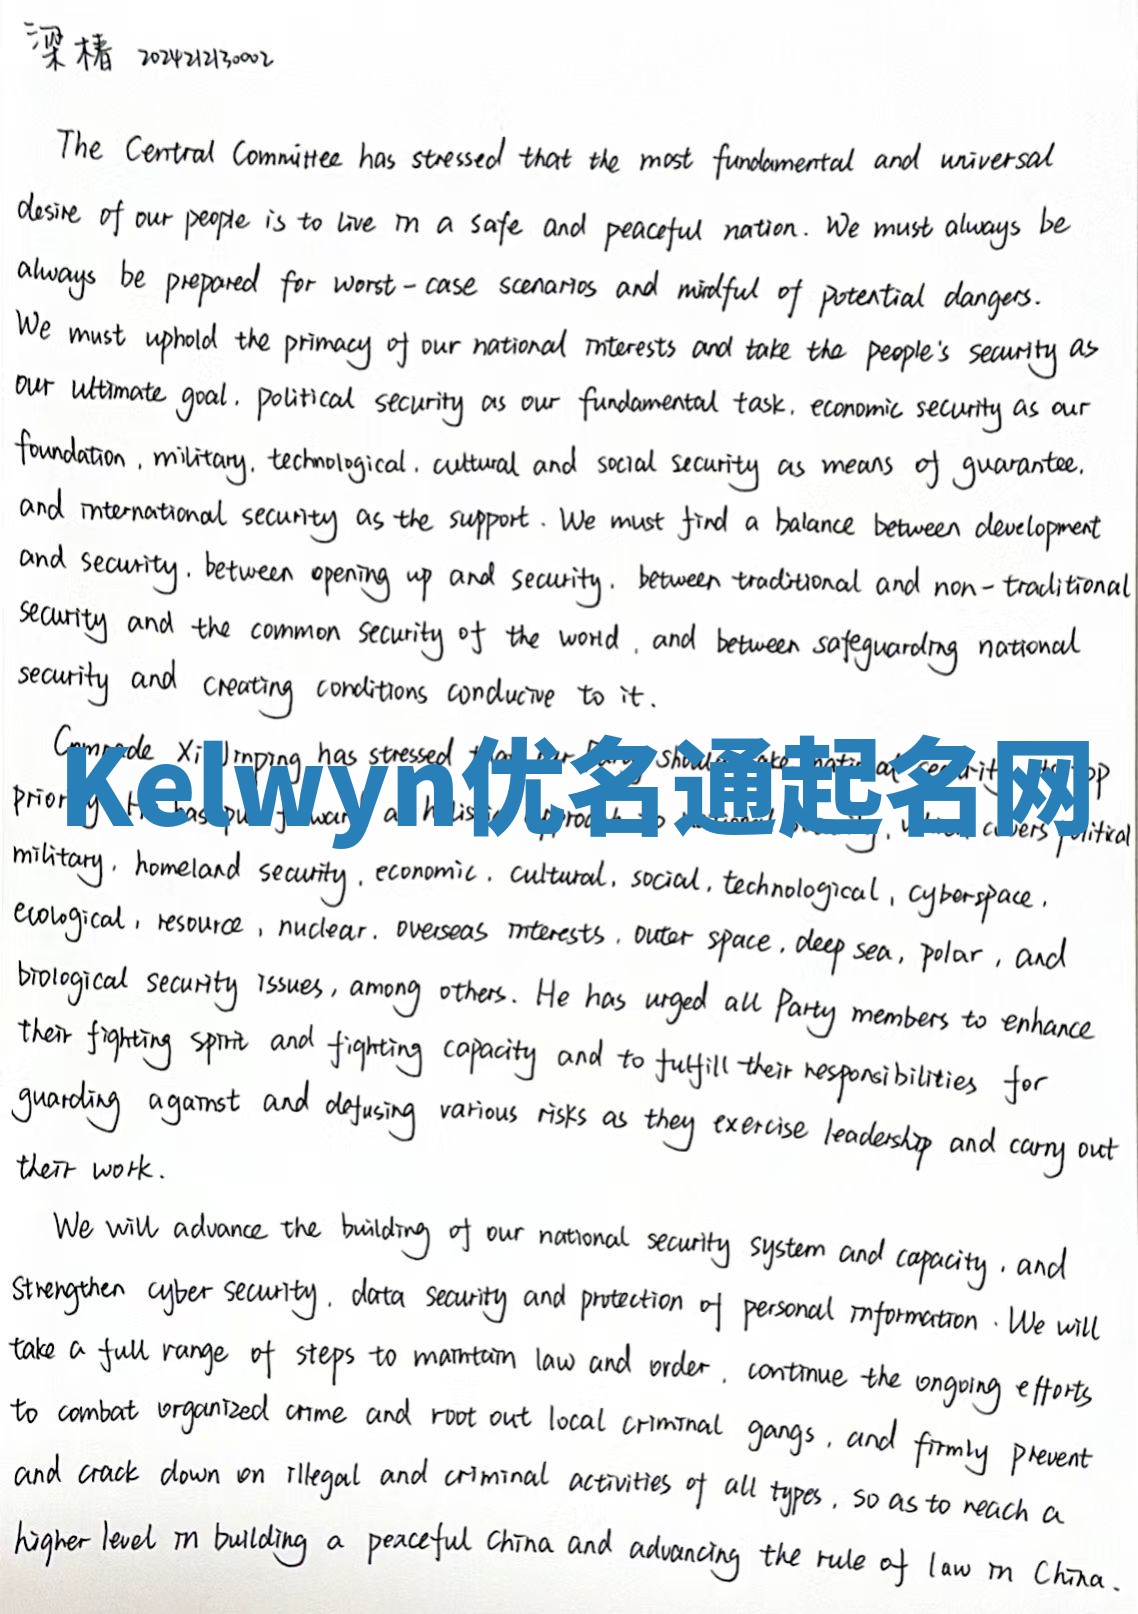 梁椿 2024212130002
The Central Committee has stressed that the most fundamental and universal
desire of our people is to live in a safe and peaceful nation. We must always be
always be prepared for worst-case scenarios and mindful of potential dangers.
We must uphold the primacy of our national interests and take the people's security as
our ultimate goal, political security as our fundamental task, economic security as our
foundation, military, technological, cultural and social security as means of guarantee,
and international security as the support. We must find a balance between development
and security, between opening up and security, between traditional and non-traditional
security and the common security of the world, and between safeguarding national
security and creating conditions conducive to it.
Comrade Xi Jinping has stressed should
Kelwyn优名通起名网
covers political
military, homeland security, economic, cultural, social, technological, cyberspace,
ecological, resource, nuclear, overseas interests, outer space, deep sea, polar, and
biological security issues, among others. He has urged all Party members to enhance
their fighting spirit and fighting capacity and to fulfill their responsibilities for
guarding against and defusing various risks as they exercise leadership and carry out
their work.
We will advance the building of our national security system and capacity, and
strengthen cyber security, data security and protection of personal information. We will
take a full range of steps to maintain law and order, continue the ongoing efforts
to combat organized crime and root out local criminal gangs, and firmly prevent
and crack down on illegal and criminal activities of all types, so as to reach a
higher level in building a peaceful China and advancing the rule of law in China.